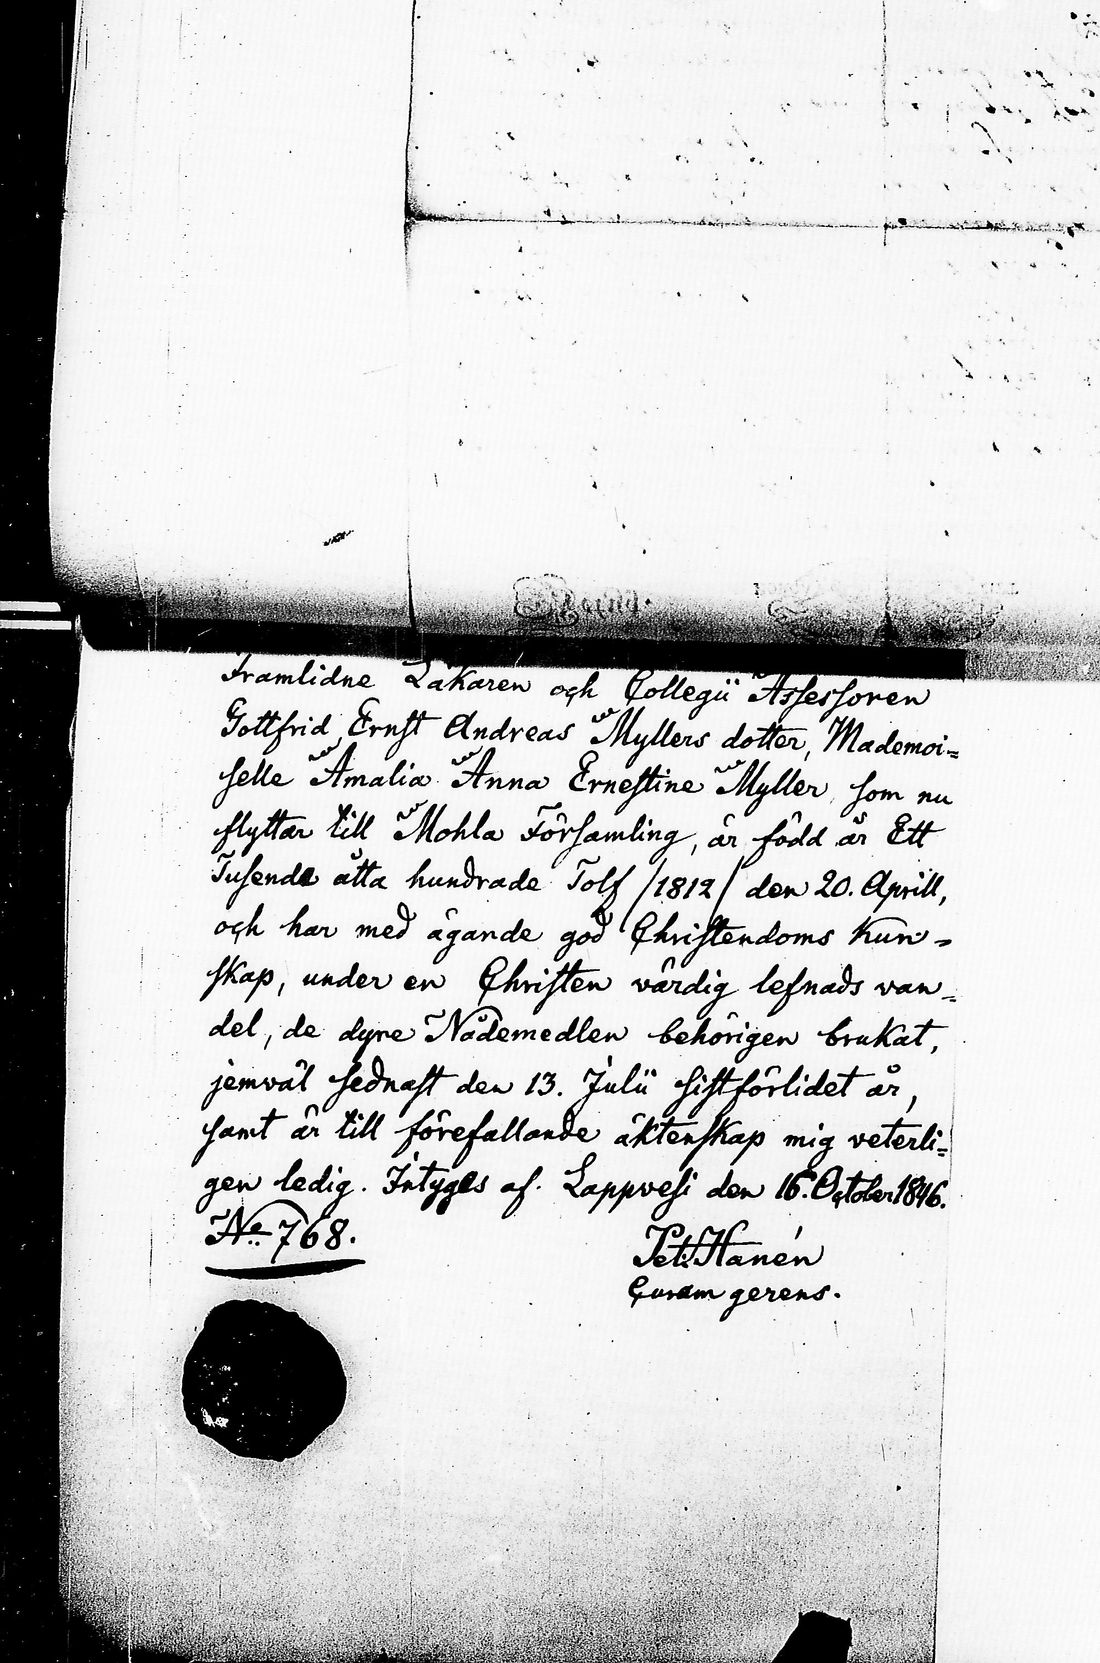 Framlidne Läkaren och Collegii Assessoren
Gottfrid Ernst Andreas Myllers dotter, Mademoi=
selle Amalia Anna Ernestine Myller, som nu
flyttar till Mohla Församling, är född år Ett
Tusende åtta hundrade Tolf /1812/ den 20. Aprill,
och har med ägande god Christendoms kun=
skap, under en Christen värdig lefnads van=
del, de dyre Nådemedlen behörigen brukat,
jemväl sednast den 13. Julii sistförlidet år,
samt är till förefallande äktenskap mig veterli=
gen ledig. Intygas af. Lappvesi den 16. October 1846.
No 768.
Pet: Hanén
Curam gerens.